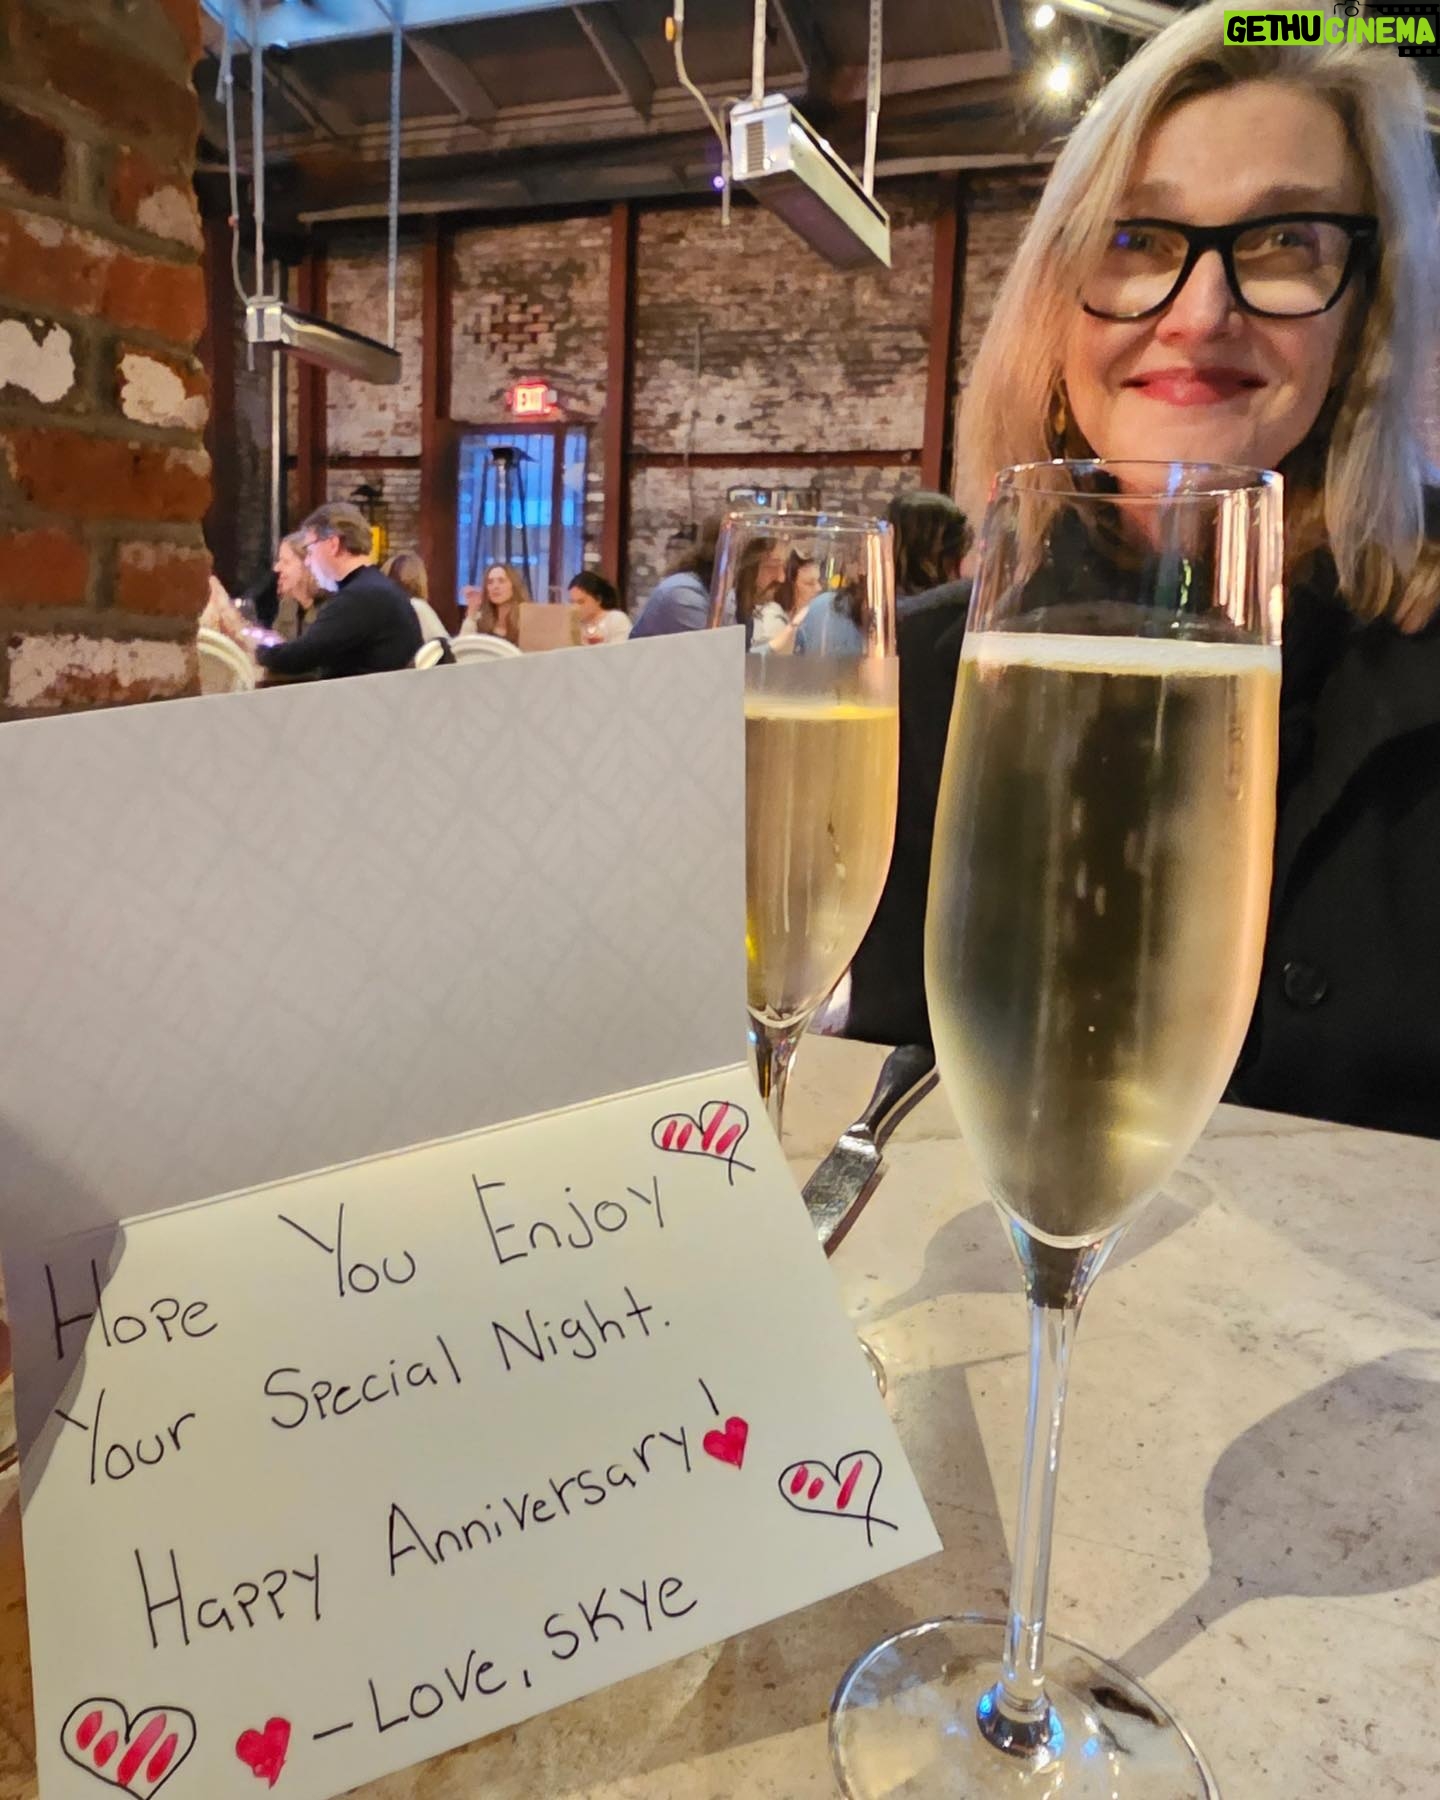 GETHUCINEMA
EXIT
Hope You Enjoy
Your Special Night.
Happy Anniversary!
– Love, SKYe